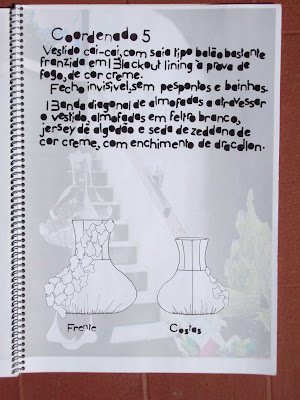 Coordenado 5
Vestido cai-cai, com saia tipo balão bastante
franzida em 1 Blackout lining à prova de
fogo, de cor creme.
Fecho invisível, sem pespontos e bainhas.
1 Banda diagonal de almofadas a atravessar
o vestido, almofadas em feltro branco,
jersey de algodão e seda de zeddana de
cor creme, com enchimento de dracalon.
Frente
Costas